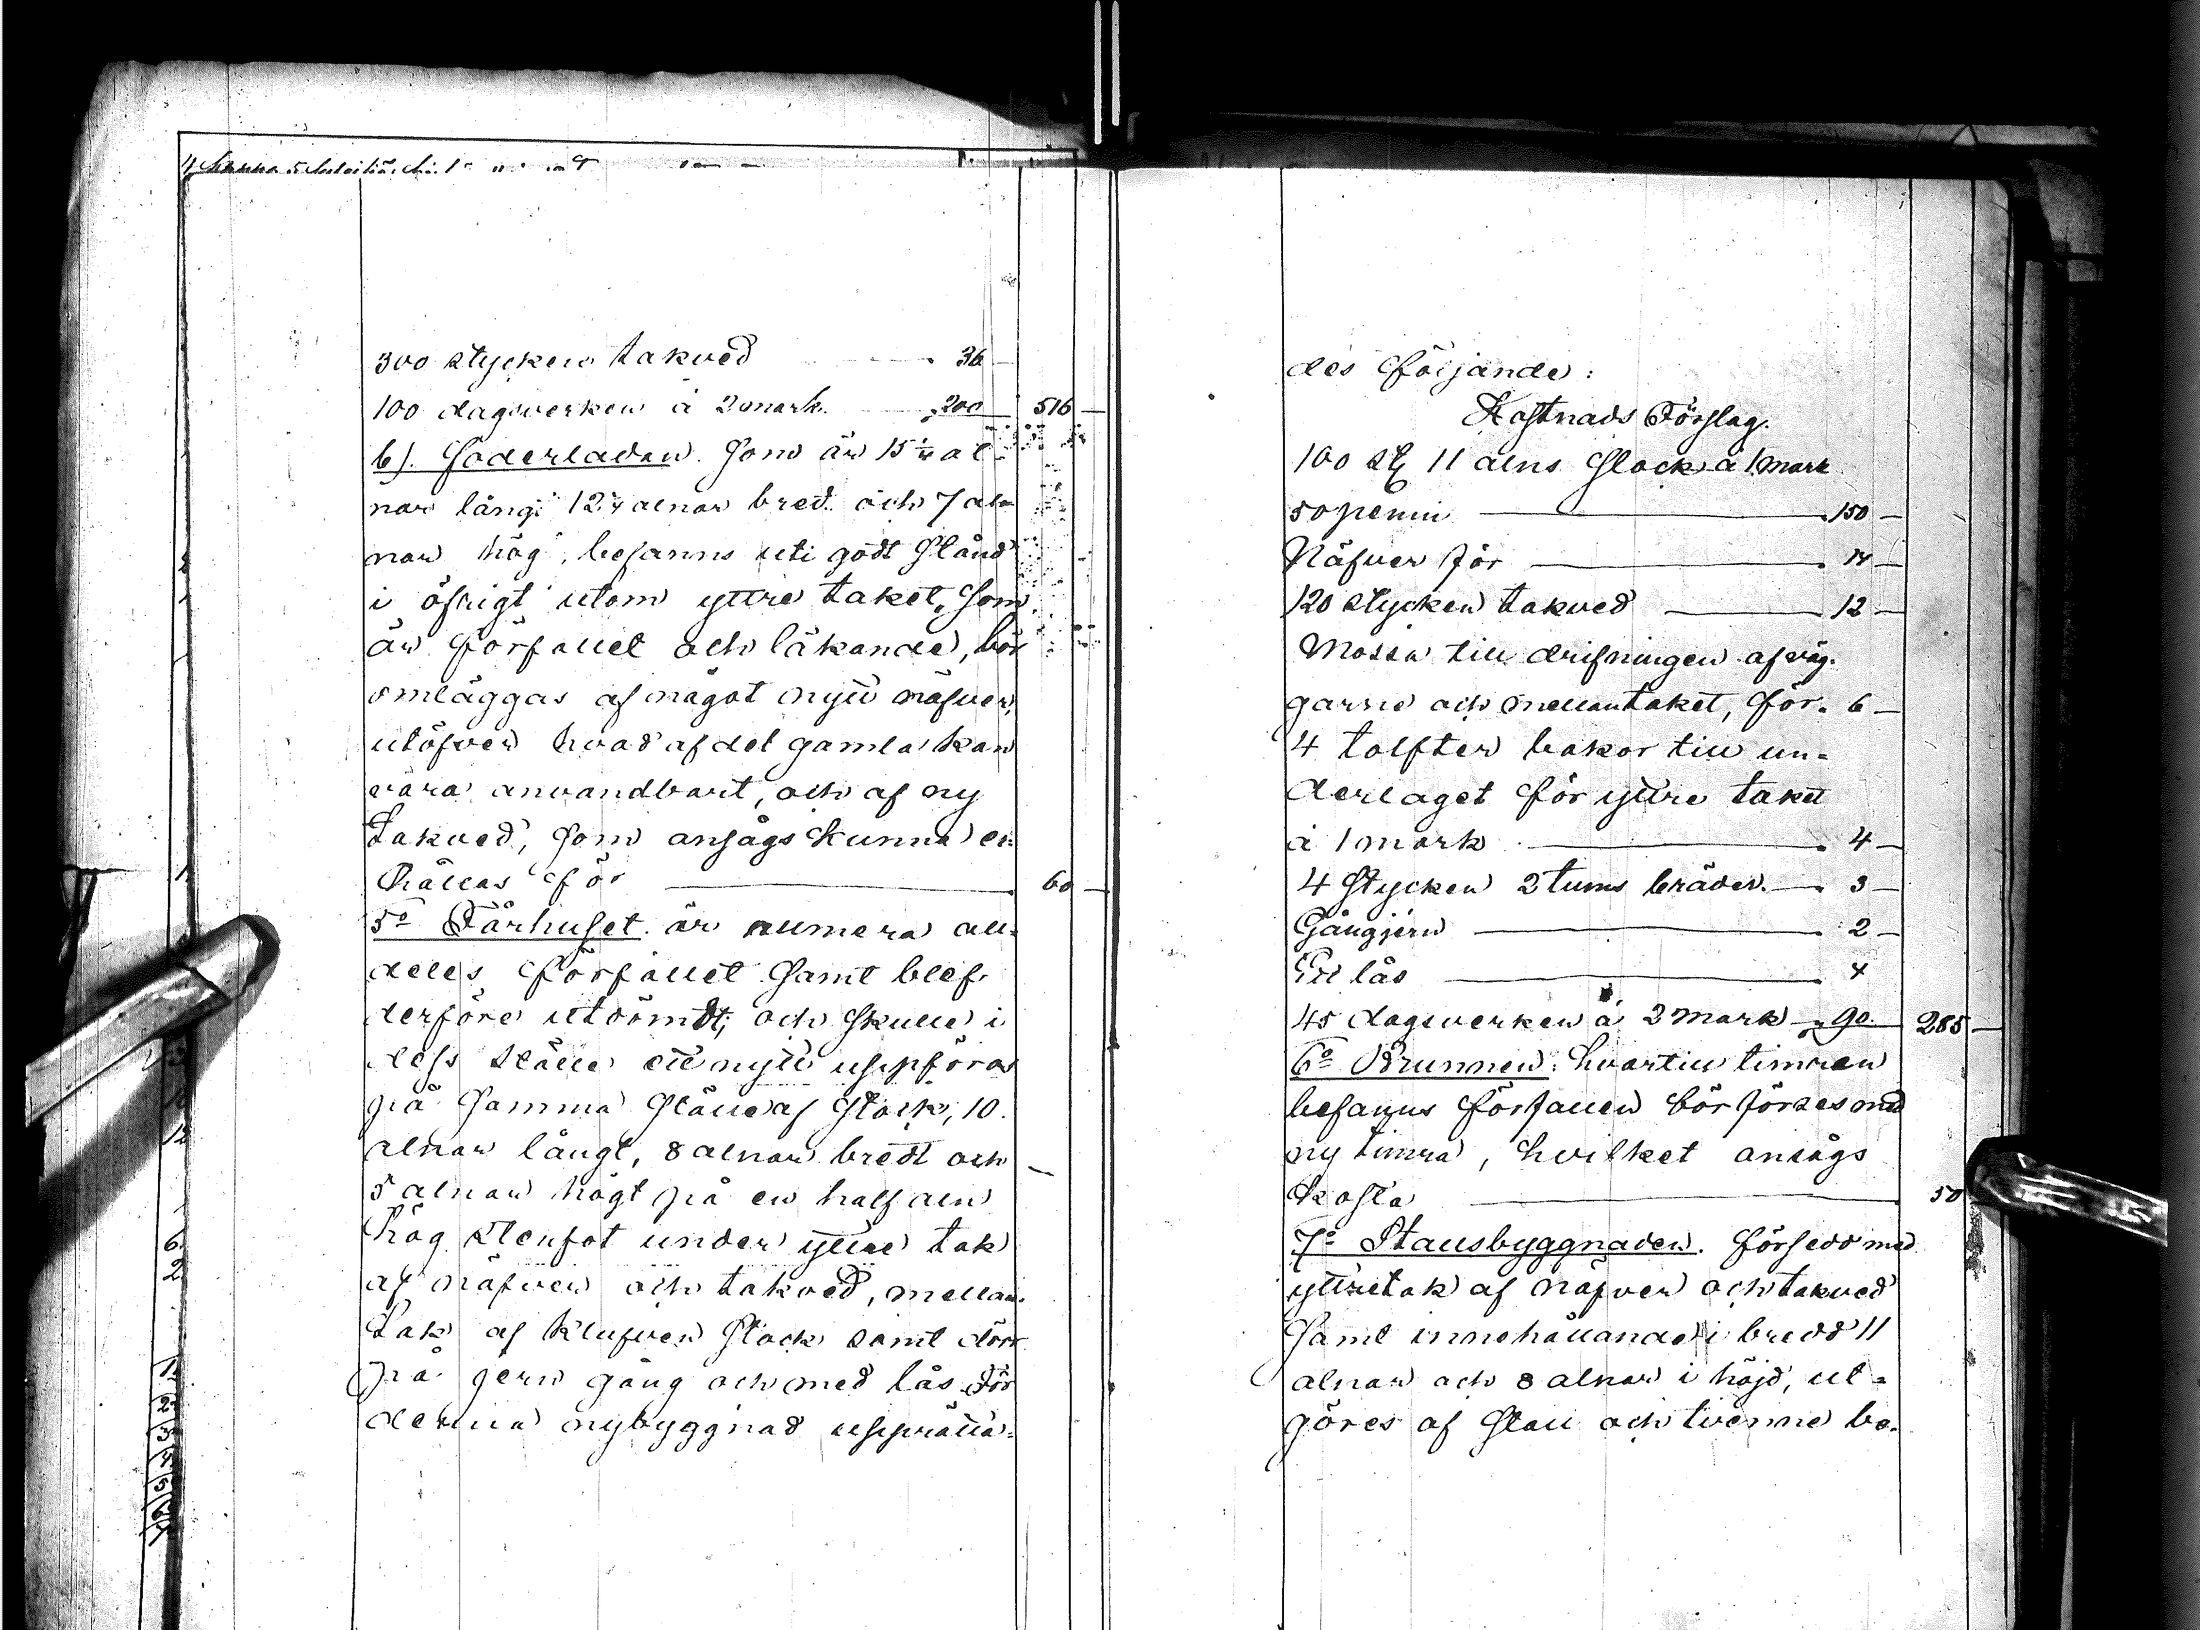 300 stycken takved 36 —
100 dagsverken à 2 mark. 200 — 516 —
b). Foderladan. som är 15 1/4 al-
nar lång 12 3/4 alnar bred och 7 al-
nar hög, befanns uti godt stånd
i öfrigt utom yttre taket, som
är förfallet och läkande, bör
omläggas af något nytt näfver,
utöfver hvad af det gamla kan
vara anvandbart, och af ny
takved, som ansågs kunna er-
hållas för — 60 —
5o Fårhuset. är numera all-
deles förfallet samt blef
derföre utdömdt; och skulle i
dess ställe ett nytt uppföras
på samma ställe af stock, 10.
alnar långt, 8 alnar bredt och
5 alnar högt på en half aln
hög stenfot under yttre tak
af näfver och takved, mellan-
tak af klufven stock samt dörr
på jern gång och med lås. För
denna nybyggnad upprätta-
des följande:
Kostnads Förslag.
100 st 11 alns stock à 1 mark
50 penni — 150 —
Näfver för — 14 —
120 stycken takved — 12 —
Mossa till drifningen af väg-
garne och mellantaket, för. 6 —
4 tolfter bakor till un-
derlaget för yttre taket
à 1 mark — 4 —
4 stycken 2 tums bräder. — 3 —
Gångjern — 2 —
Ett lås — 4
45 dagsverken à 2 mark — 90. — 285 —
6o Brunnen: hvartill timran
befanns förfallen bör förses med
ny timra, hvilket ansågs
kosta — 50
7o Stallsbyggnaden. försedd med
yttretak af näfver och takved
samt innehållande i bredd 11
alnar och 8 alnar i höjd, ut-
göres af stall och tvenne bo-